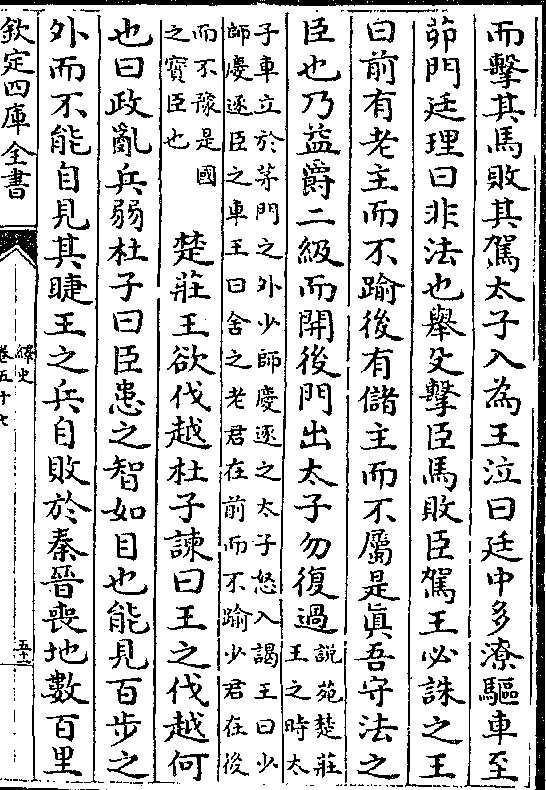 而擊其馬敗其駕太子入為王泣曰廷中多潦驅車至
茆門廷理曰非法也舉殳擊臣馬敗臣駕王必誅之王
曰前有老主而不踰後有儲主而不屬是眞吾守法之
臣也乃益爵二級而開後門出太子勿復過說苑楚莊
王之時太
子車立於茅門之外少師慶逐之太子怒入謁王曰少
師慶逐臣之車王曰舍之老君在前而不踰少君在後
而不豫是國
之寳臣也
楚莊王欲伐越杜子諫曰王之伐越何
也曰政亂兵弱杜子曰臣患之智如目也能見百步之
外而不能自見其睫王之兵自敗於秦晉喪地數百里
欽定四庫全書
繹史
卷五十七